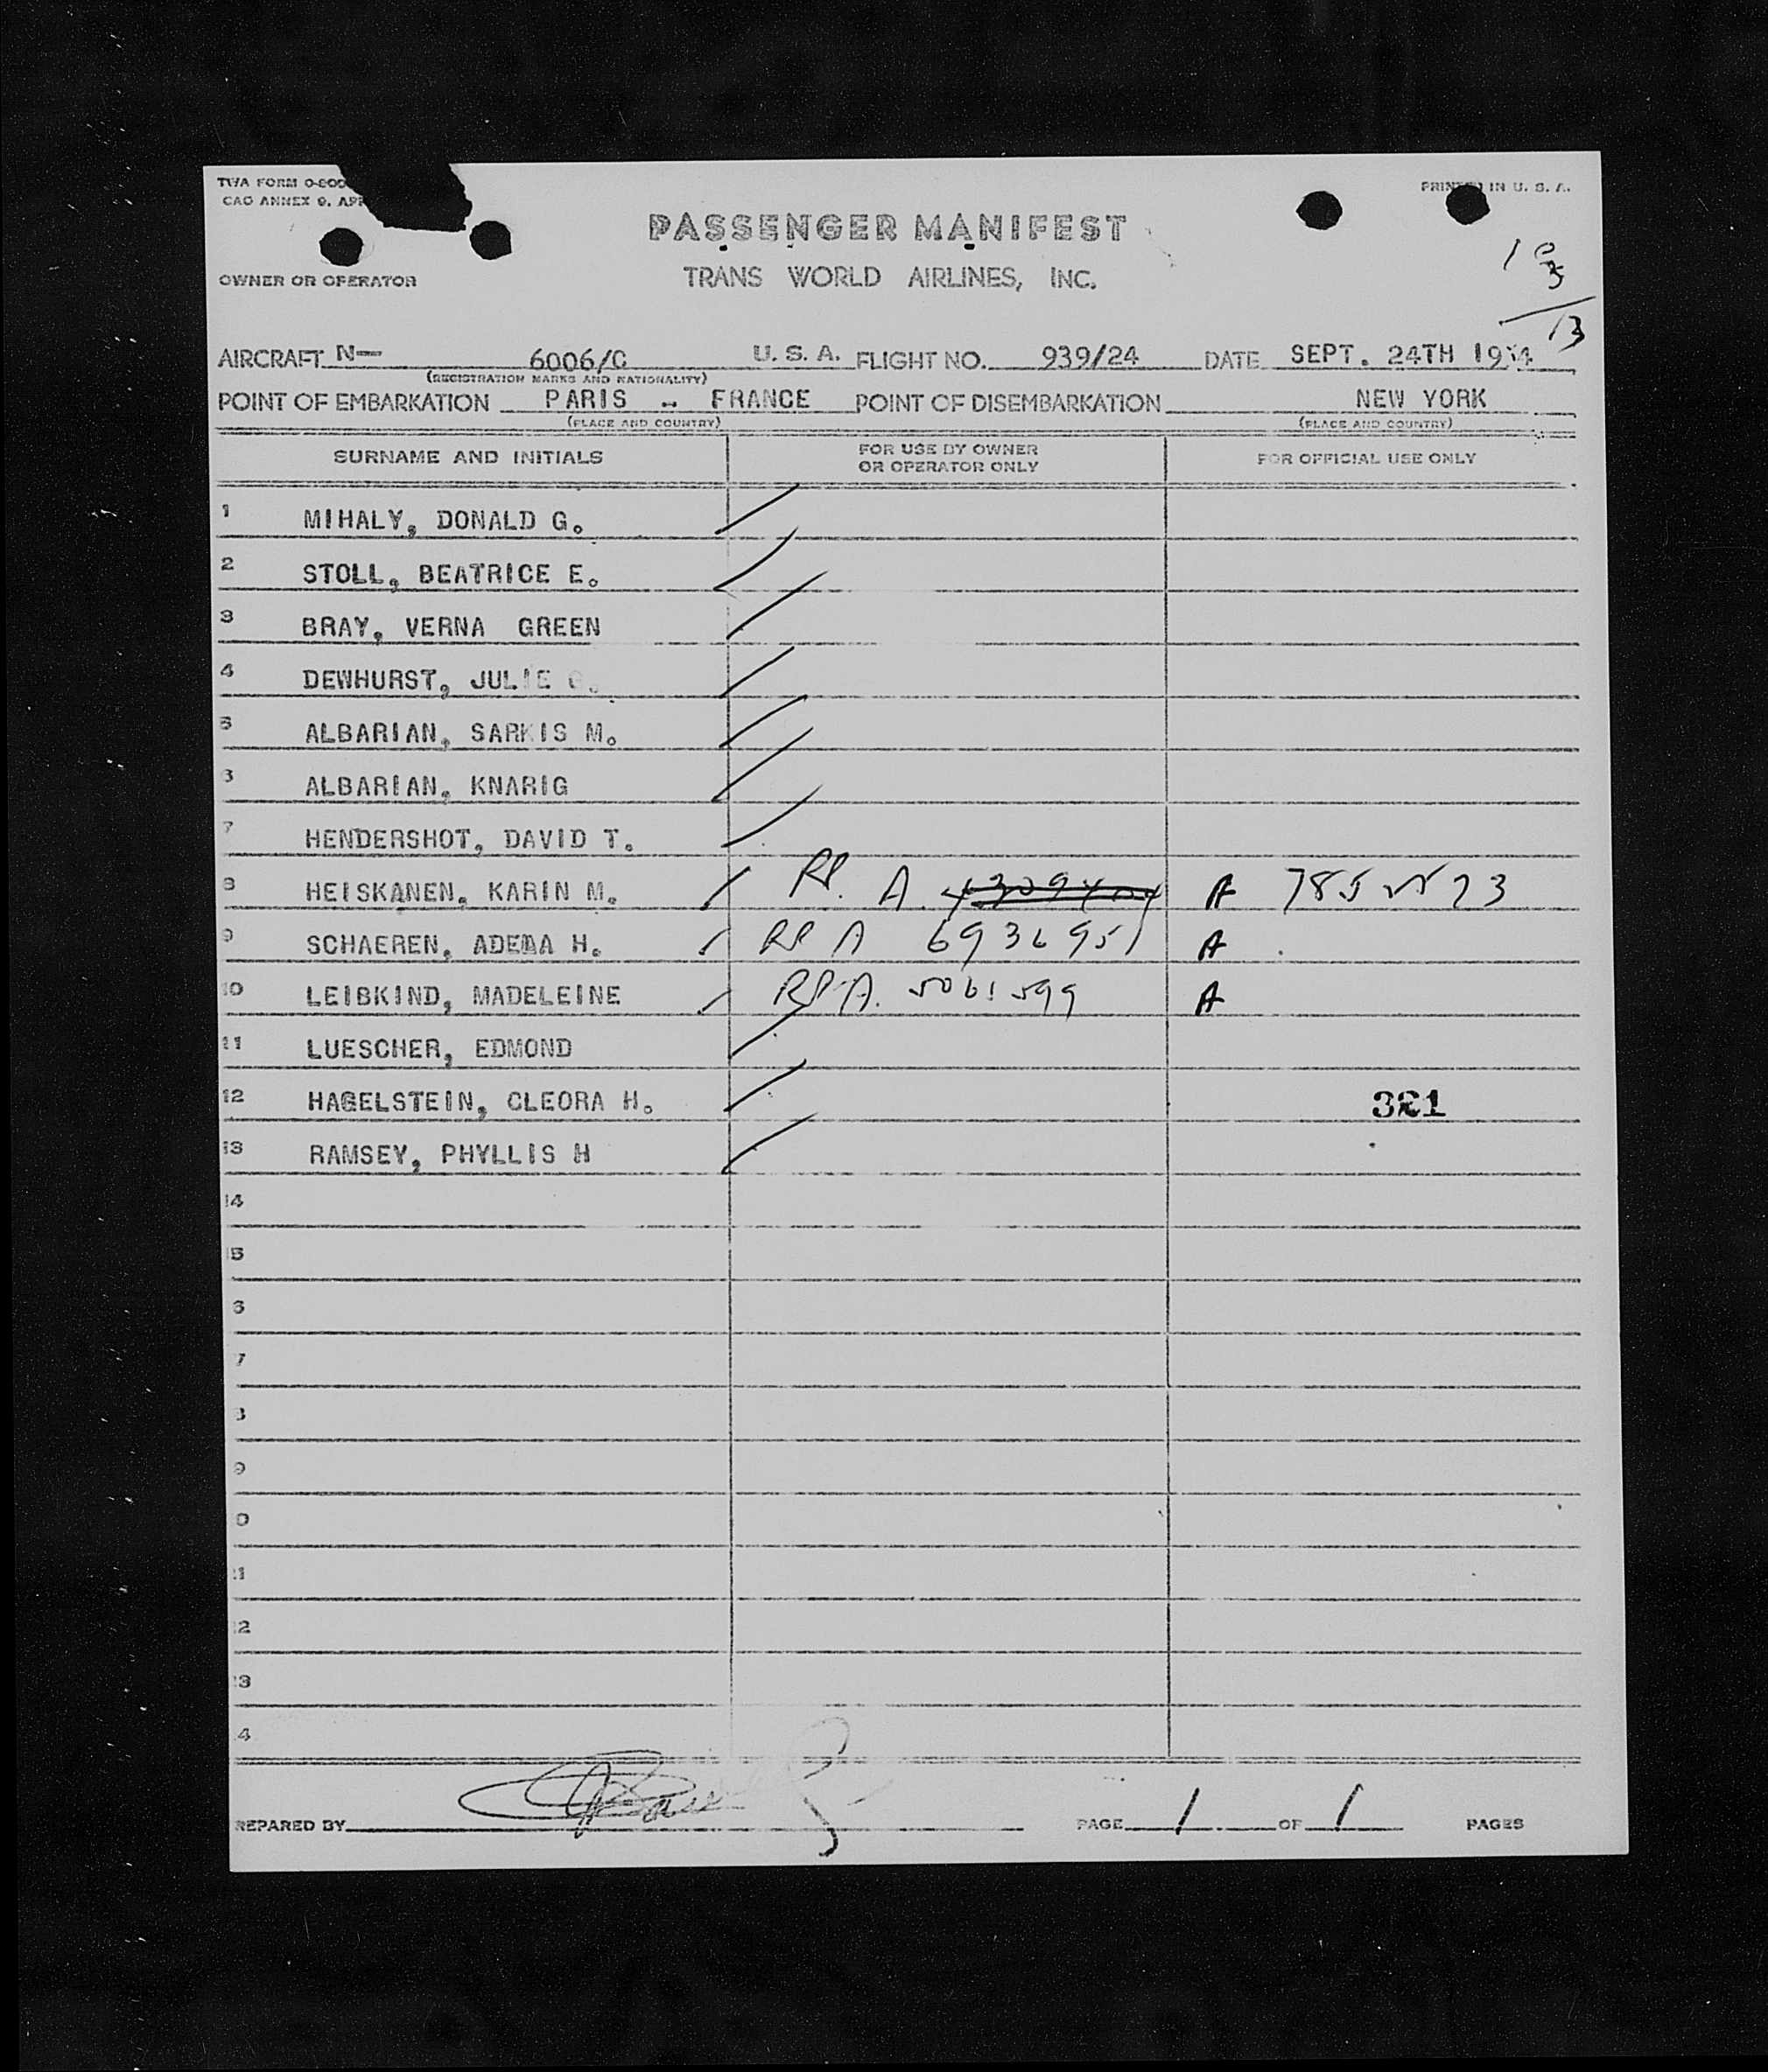 TWA FORM 0-800
CAO ANNEX 9. AP
PRINTED IN U. S. A.
PASSENGER MANIFEST
OWNER OR OPERATOR
TRANS WORLD AIRLINES, INC.
13
AIRCRAFT N— 6006/C U. S. A. FLIGHT NO. 939/24 DATE SEPT. 24TH 1954
(REGISTRATION MARKS AND NATIONALITY)
POINT OF EMBARKATION PARIS - FRANCE POINT OF DISEMBARKATION NEW YORK
(PLACE AND COUNTRY) (PLACE AND COUNTRY)
SURNAME AND INITIALS FOR USE BY OWNER OR OPERATOR ONLY FOR OFFICIAL USE ONLY
1 MIHALY, DONALD G.
2 STOLL, BEATRICE E.
3 BRAY, VERNA GREEN
4 DEWHURST, JULIE
5 ALBARIAN, SARKIS M.
6 ALBARIAN, KNARIG
7 HENDERSHOT, DAVID T.
8 HEISKANEN, KARIN M. RP. A. A
9 SCHAEREN, ADEMA H. RP A 6936951 A
10 LEIBKIND, MADELEINE RP A. 5061599 A
11 LUESCHER, EDMOND
12 HAGELSTEIN, CLEORA H. 321
13 RAMSEY, PHYLLIS H
14
15
6
7
8
9
0
1
2
3
4
REPARED BY PAGE 1 OF 1 PAGES